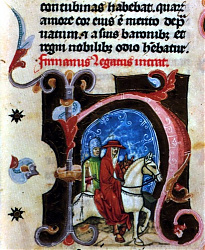 contubinas habebat. quar
amore cor eius emento dep
uatum. a suis baronibz et
regni nobilibz odio hebatur.
firmanus legatus intrat.